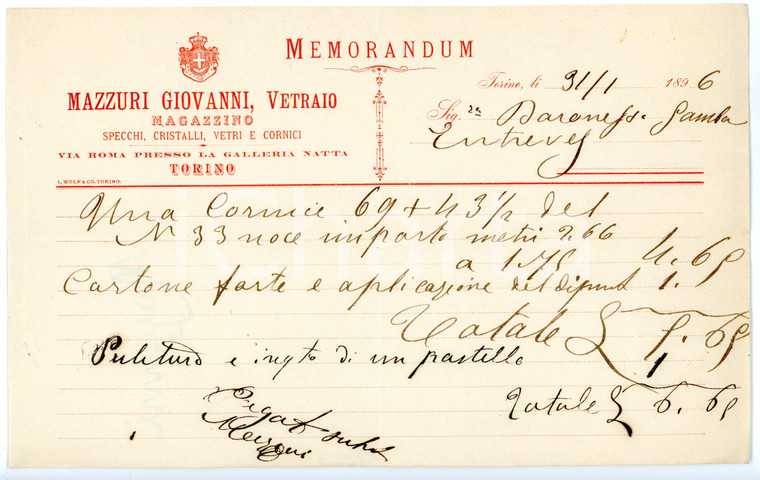 MEMORANDUM
MAZZURI GIOVANNI, VETRAIO
MAGAZZINO
SPECCHI, CRISTALLI, VETRI E CORNICI
VIA ROMA PRESSO LA GALLERIA NATTA
TORINO
L. WOLF & CO. TORINO.
Torino, li 31/1 1896
Sig.ra Baronessa Gamba
Entreves
Una Cornice 69 + 43 1/2 del
N 33 noce importo metri 2.66
a 1.75 4.65
Cartone forte e aplicazione del dipinto 1.
Totale L 5.65
Pulitura e di un pastello 1
Totale L 6.65
Mazzuri